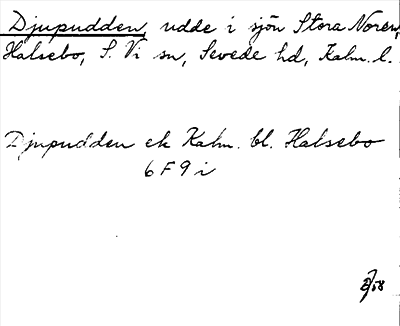 Djupudden, udde i sjön Stora Noren,
Halsebo, S. Vi sn, Sevede hd, Kalm. l.
Djupudden ek Kalm. bl. Halsebo
6 F 9 i